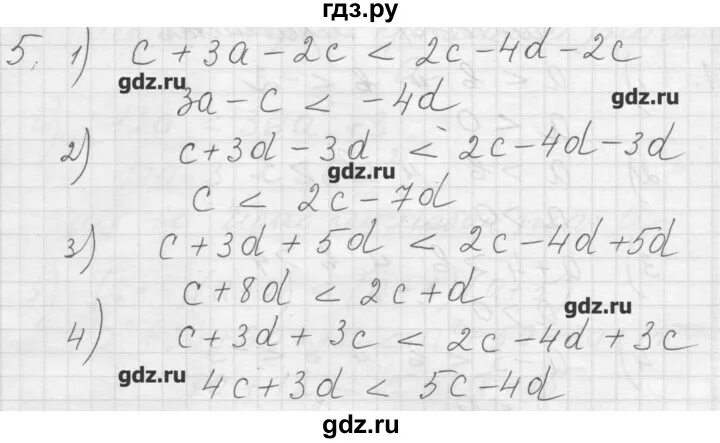 гдз.ру
5. 1) c + 3a - 2c < 2c - 4d - 2c
gdz.ru
3a - c < - 4d
gdz.ru
2) c + 3d - 3d < 2c - 4d - 3d
gdz.ru
c < 2c - 7d
3) c + 3d + 5d < 2c - 4d + 5d
c + 8d < 2c + d
gdz.ru
4) c + 3d + 3c < 2c - 4d + 3c
gdz.ru
4c + 3d < 5c - 4d
gdz.ru